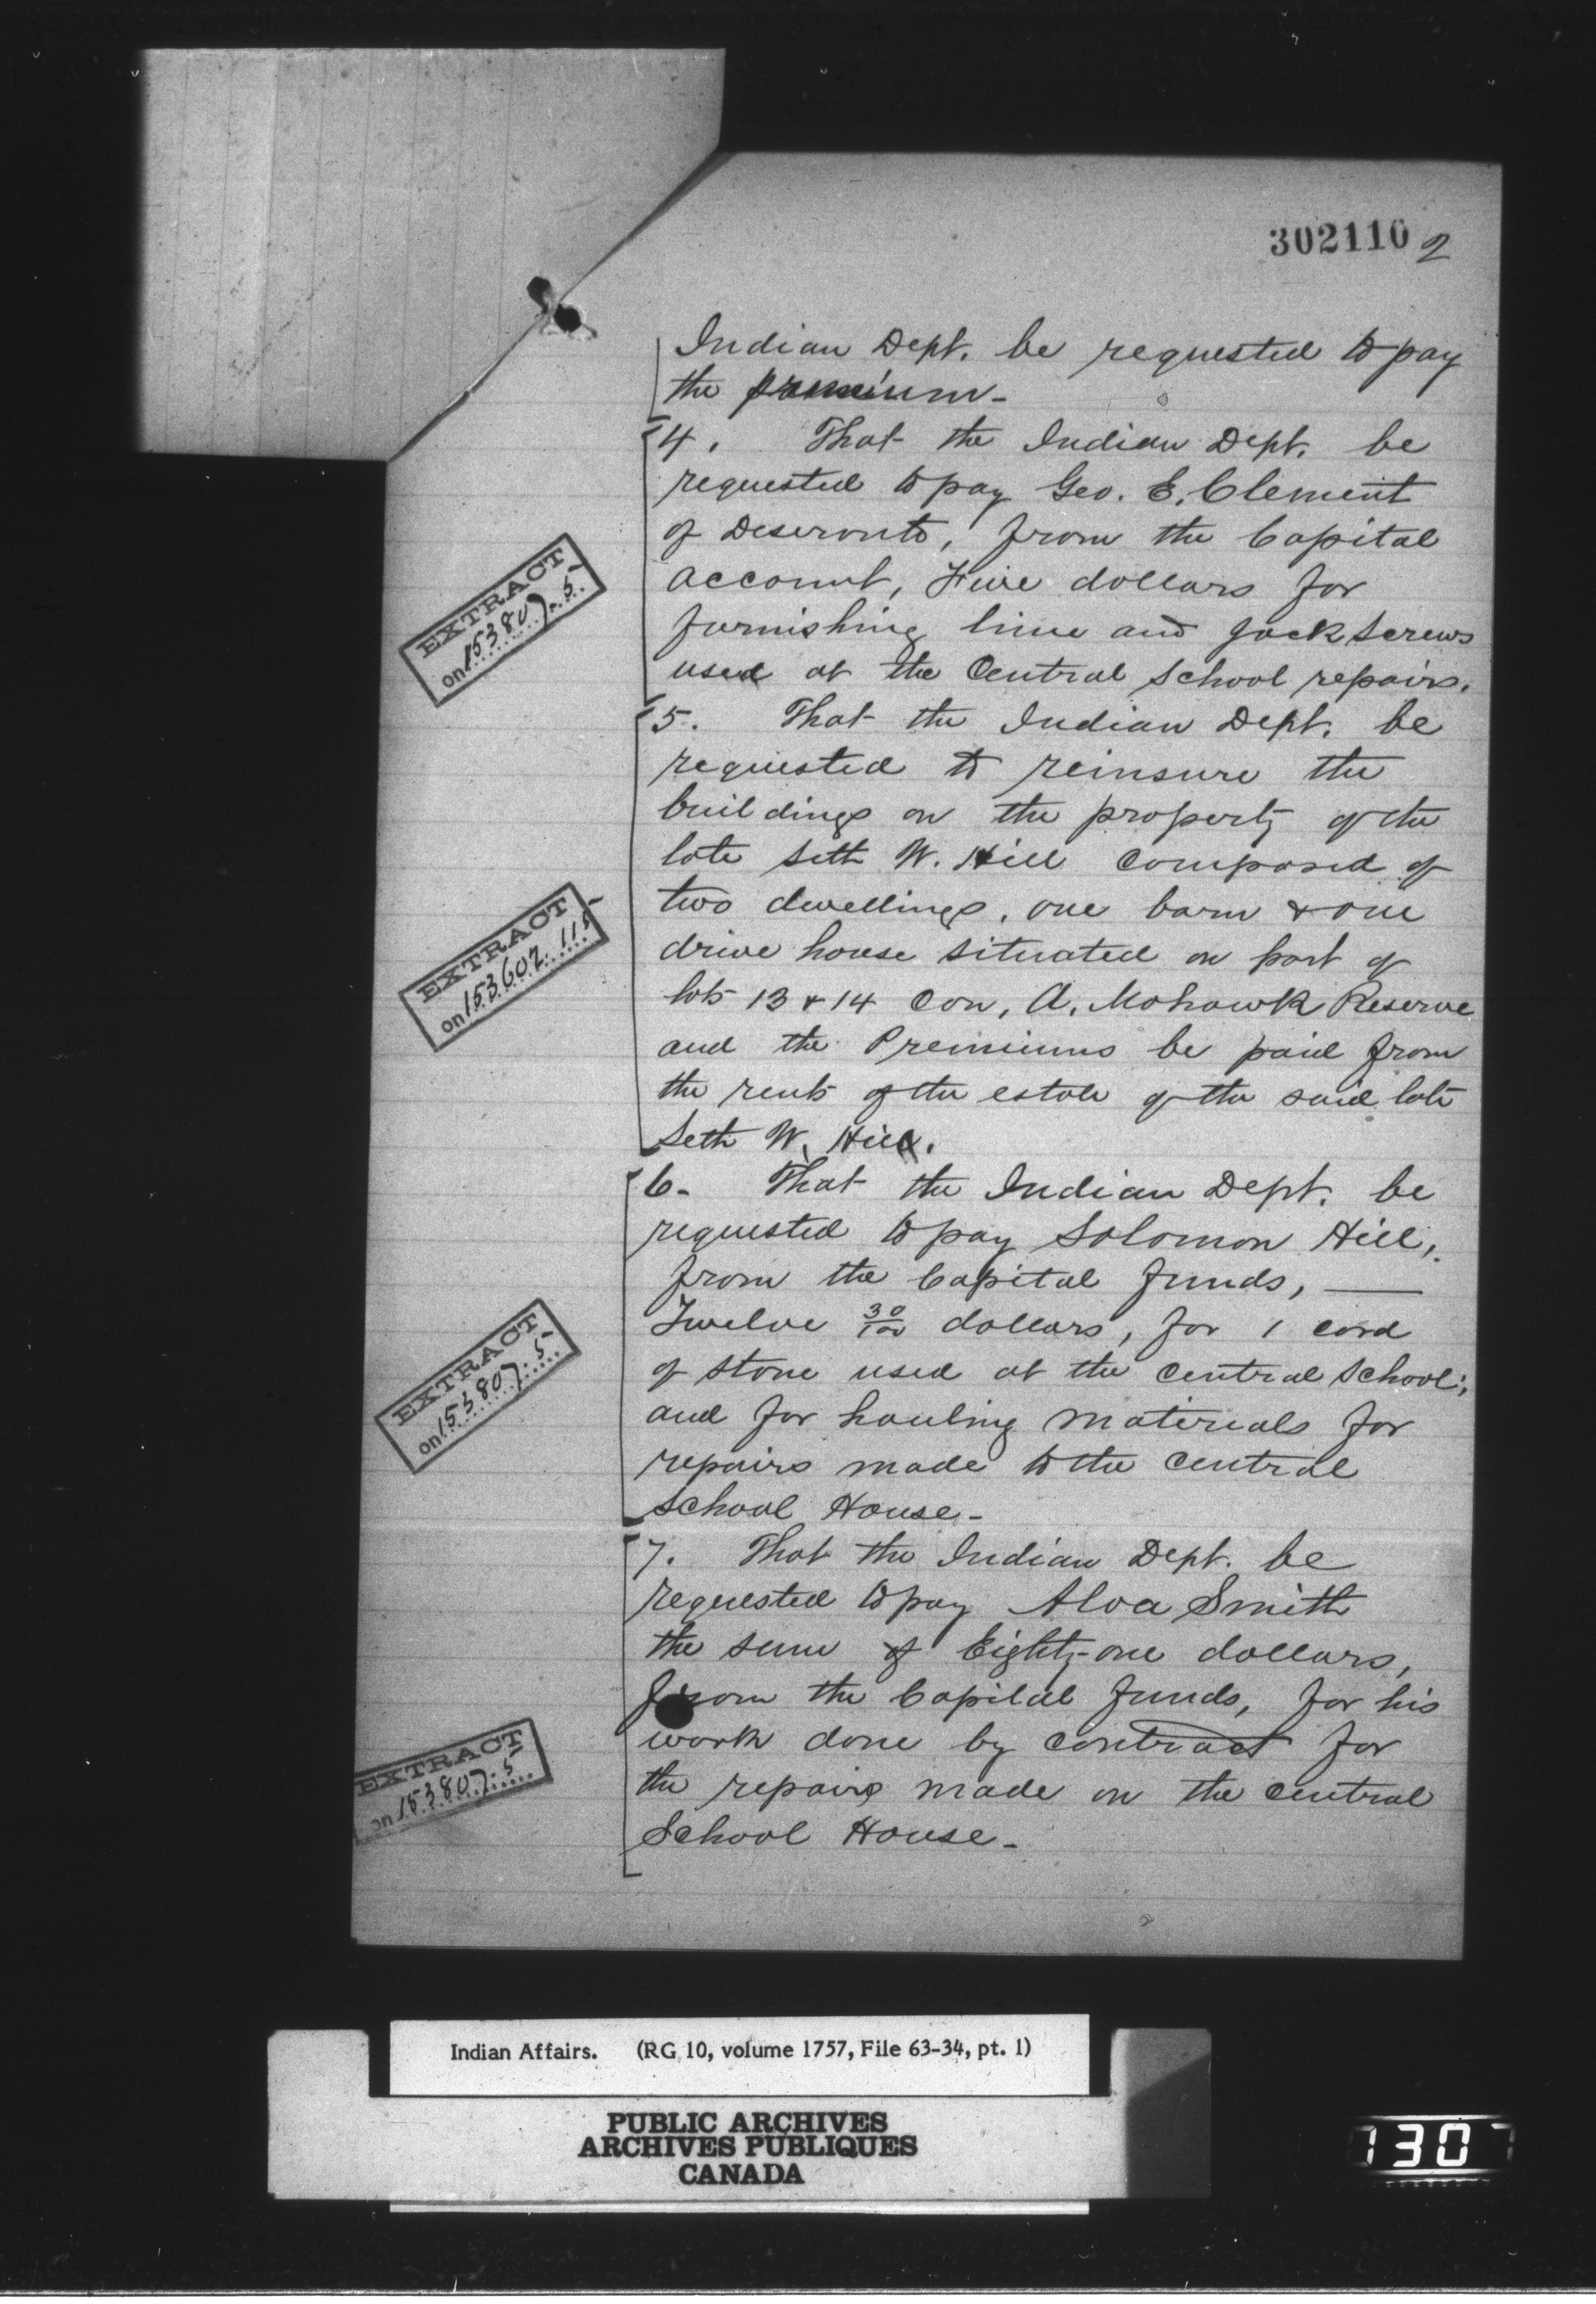 302110 2
Indian Dept. be requested to pay
the premium -
4. That the Indian Dept. be
requested to pay Geo. E. Clement
of Deseronto, from the Capital
account, Five dollars for
furnishing lime and Jack Screws
used at the Central School repairs.
EXTRACT
on 153807-5
5. That the Indian Dept. be
requested to reinsure the
buildings on the property of the
late Seth W. Hill composed of
two dwellings, one barn & one
drive house situated on part of
lots 13 & 14 Con. A. Mohawk Reserve
and the Premiums be paid from
the rents of the estate of the said late
Seth W. Hill.
EXTRACT
on 153602-115
6- That the Indian Dept. be
requested to pay Solomon Hill,
from the Capital funds, —
Twelve 30/100 dollars, for 1 cord
of stone used at the Central School;
and for hauling materials for
repairs made to the Central
School House -
EXTRACT
on 153807-5
7. That the Indian Dept. be
requested to pay Alva Smith
the sum of Eighty-one dollars,
from the Capital funds, for his
work done by contract for
the repairs made on the Central
School House -
EXTRACT
on 153807-5
Indian Affairs. (RG 10, volume 1757, File 63-34, pt. 1)
PUBLIC ARCHIVES
ARCHIVES PUBLIQUES
CANADA
1307